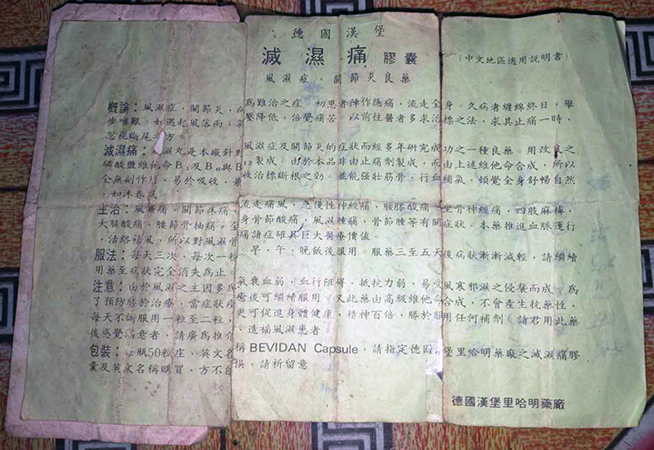 德國漢堡
滅濕痛膠囊
風濕症、關節炎良藥
(中文地區適用說明書)
概論：風濕症，關節炎，
為難治之症，初患者陣作隱痛，流走全身，久病者纏綿終日，舉
步唯艱，如遇起風落雨，
壓降低，倍覺痛苦，以前往醫者多求治標之法，求其止痛一時，
忽視斷尾
滅濕痛：
丸是本廠針對
風濕症及關節炎的症狀而經多年研究成功之一種良藥，用改良之
磷酸鹽維他命B₁及B₆與B₁₂製成，由於本品非由止痛劑製成，而由上述維他命合成，所以
全無副作用，易於吸收，
收治標斷根之功，並能強壯筋骨，行血補氣，頓覺全身舒暢自然
，如沐春風
主治：風濕痛，關節
流走痛風，急慢性神經痛，腰膝酸痛，坐骨神經痛，四肢麻

大腿酸痛，腫節骨抽痛，全身骨節酸痛，風濕腫痛，骨節腫等有關症狀。本藥推進血脈運行
，活絡祛風，所以對風濕骨痛諸症碩具巨大醫療價值。
服法：每天三次，每次一粒
早，午，晚飯後服用。服藥三至五天後病狀漸漸減輕，請繼續
用藥至病狀完全消失為止
注意：由於風濕之主因多為
氣衰血弱，血行阻礙，抵抗力弱，易受風寒邪濕之侵襲而成，為
了預防勝於治療，當症狀
後可繼續服用，又此藥由高級維他命合成，不會產生抗藥性，
每天不斷服用一粒至二粒，更可促進身體健康，精神百倍，勝於服用任何補劑，諸君用此藥
後感覺滿意者，請廣為推介，造福風濕患者
包裝：每瓶50粒庄，英文名稱BEVIDAN Capsule，請指定德國漢堡里哈明藥廠之滅濕痛膠
囊及英文名稱購買，方不
悞，請祈留意
德國漢堡里哈明藥廠